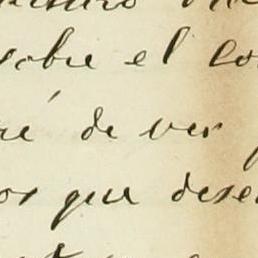 sobre el co
ré de ver
os que dese